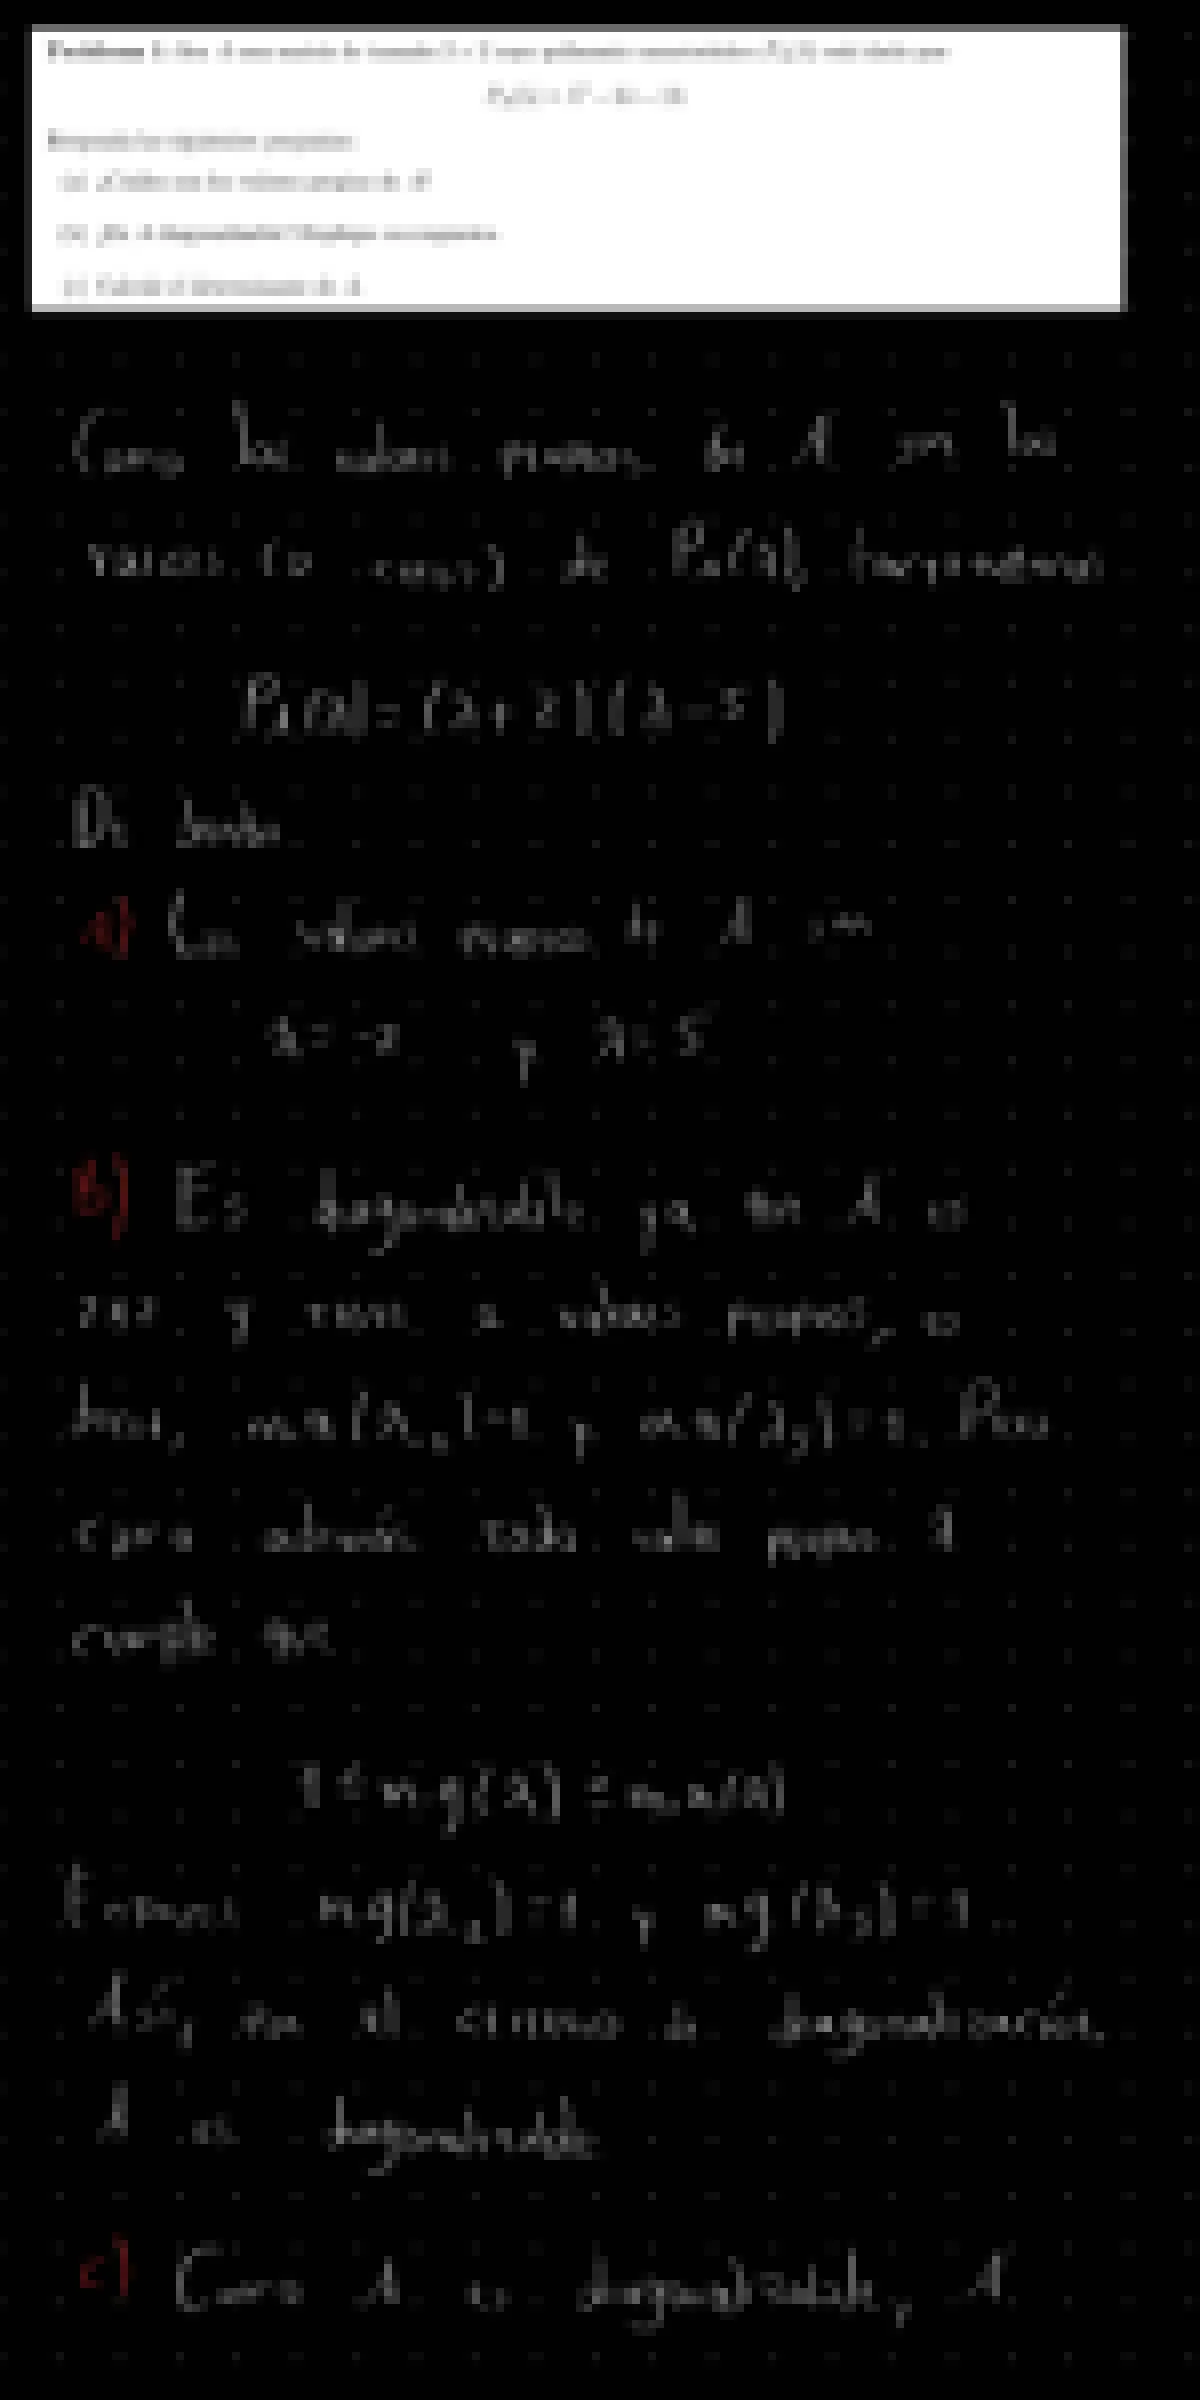 Problema 1. Sea A una matriz de tamaño 2 × 2 cuyo polinomio característico P_A(λ) está dado por
Responda las siguientes preguntas:
(a) ¿Cuáles son los valores propios de A?
(b) ¿Es A diagonalizable? Justifique su respuesta.
(c) Calcule el determinante de A.
Como los valores propios de A son los
raíces (o ceros) de P_A(λ), factorizamos
P_A(λ) = (λ+2)(λ-5)
De donde
a) Los valores propios de A son
λ = -2 y λ = 5
b) Es diagonalizable ya que A es
2x2 y tiene 2 valores propios, es
decir, ma(λ₁) = 1 y ma(λ₂) = 1. Pero
como además todo valor propio λ
cumple que
1 ≤ mg(λ) ≤ ma(λ)
Tenemos mg(λ₁) = 1 y mg(λ₂) = 1.
Así, por el criterio de diagonalización,
A es diagonalizable
c) Como A es diagonalizable, A